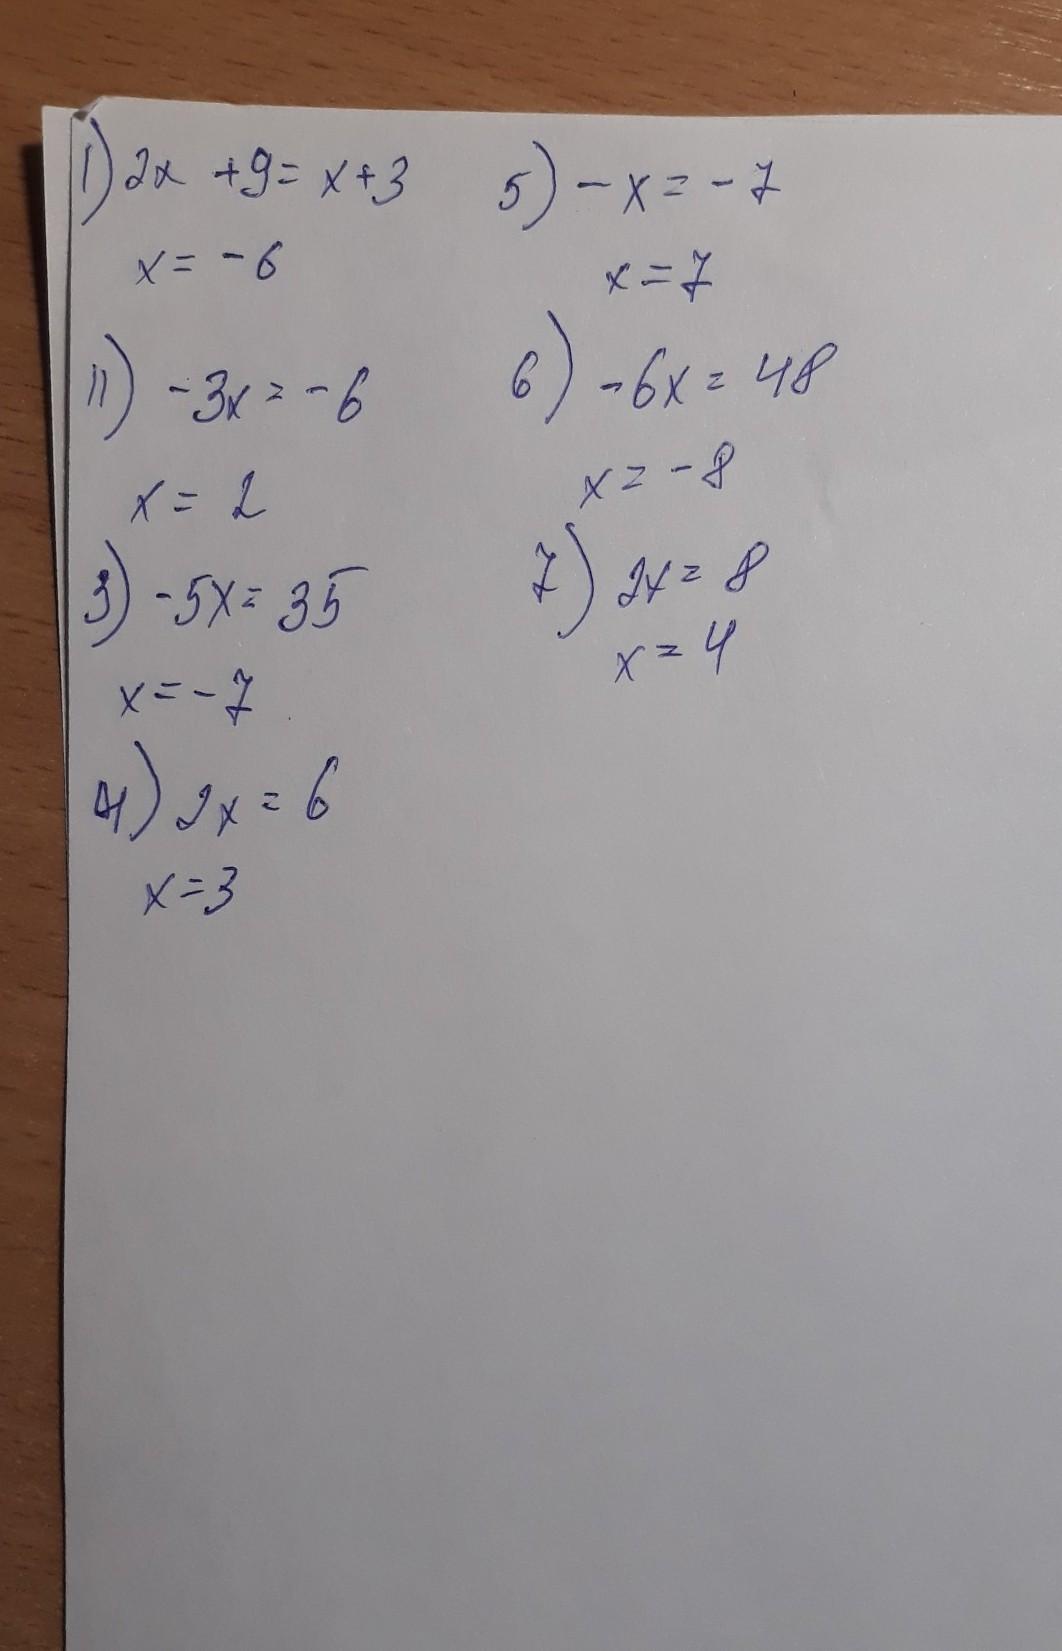 1) 2x +9= x+3
x= -6
11) -3x= -6
x= 2
3) -5x= 35
x= -7
4) 2x= 6
x=3
5) -x= -7
x=7
6) -6x= 48
x= -8
7) 2x= 8
x= 4